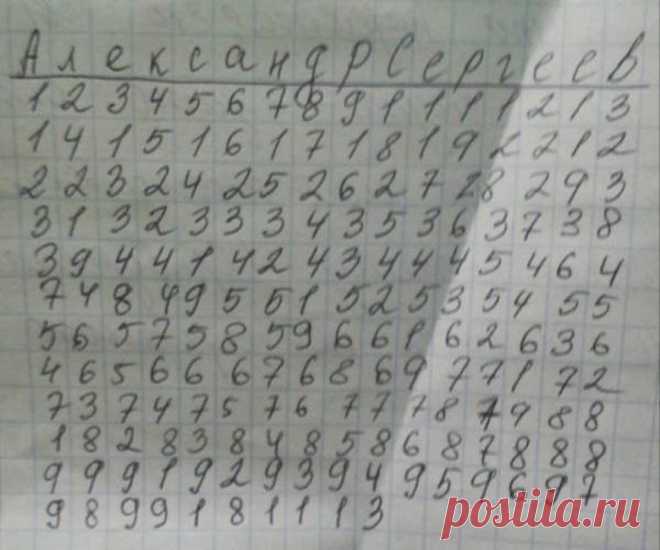 А л е к с а н д р С е р г е е в
1 2 3 4 5 6 7 8 9 1 1 1 1 2 1 3
1 4 1 5 1 6 1 7 1 8 1 9 2 2 1 2
2 2 3 2 4 2 5 2 6 2 7 2 8 2 9 3
3 1 3 2 3 3 3 4 3 5 3 6 3 7 3 8
3 9 4 4 1 4 2 4 3 4 4 4 5 4 6 4
7 4 8 4 9 5 5 1 5 2 5 3 5 4 5 5
5 6 5 7 5 8 5 9 6 6 1 6 2 6 3 6
4 6 5 6 6 6 7 6 8 6 9 7 7 1 7 2
7 3 7 4 7 5 7 6 7 7 7 8 7 9 8 8
1 8 2 8 3 8 4 8 5 8 6 8 7 8 8 8
9 9 9 1 9 2 9 3 9 4 9 5 9 6 9 7
9 8 9 9 1 8 1 1 1 3
postila.ru